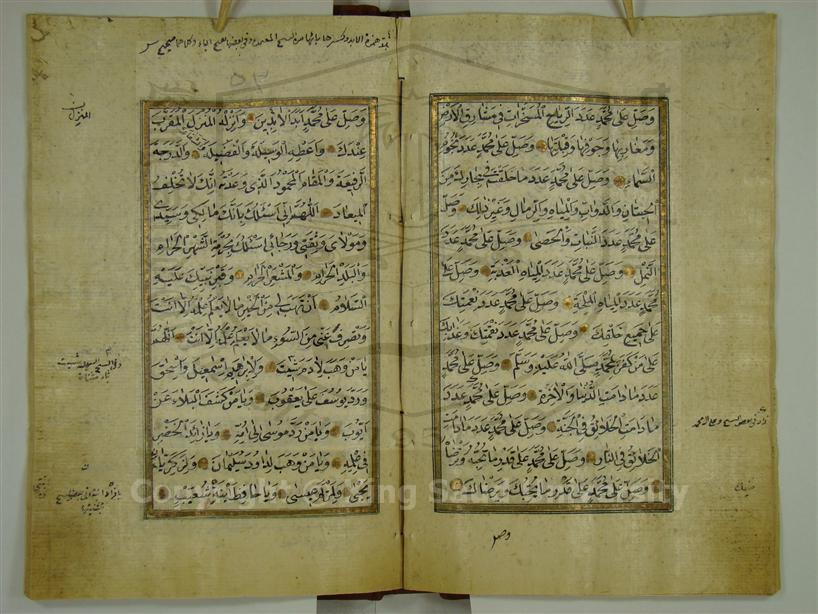 وَصَلِّ عَلَى مُحَمَّدٍ عَدَدَ الرِّيَاحِ الْمُسَخَّرَاتِ فِي مَشَارِقِ الْأَرْضِ
وَمَغَارِبِهَا وَجَوْفِهَا وَقِبْلَتِهَا وَصَلِّ عَلَى مُحَمَّدٍ عَدَدَ نُجُومِ
السَّمَاءِ وَصَلِّ عَلَى مُحَمَّدٍ عَدَدَ مَا خَلَقْتَ فِي بِحَارِكَ مِنَ
الْحِيتَانِ وَالدَّوَابِّ وَالْمِيَاهِ وَالرِّمَالِ وَغَيْرِ ذٰلِكَ وَصَلِّ
عَلَى مُحَمَّدٍ عَدَدَ النَّبَاتِ وَالْحَصَى وَصَلِّ عَلَى مُحَمَّدٍ عَدَدَ
النَّمْلِ وَصَلِّ عَلَى مُحَمَّدٍ عَدَدَ الْمِيَاهِ الْعَذْبَةِ وَصَلِّ عَلَى
مُحَمَّدٍ عَدَدَ الْمِيَاهِ الْمِلْحَةِ وَصَلِّ عَلَى مُحَمَّدٍ عَدَدَ نِعْمَتِكَ
عَلَى جَمِيعِ خَلْقِكَ وَصَلِّ عَلَى مُحَمَّدٍ عَدَدَ نِقْمَتِكَ وَعَذَابِكَ
عَلَى مَنْ كَفَرَ بِمُحَمَّدٍ صَلَّى اللهُ عَلَيْهِ وَسَلَّمَ وَصَلِّ عَلَى مُحَمَّدٍ
عَدَدَ مَا دَامَتِ الدُّنْيَا وَالْآخِرَةُ وَصَلِّ عَلَى مُحَمَّدٍ عَدَدَ
مَا دَامَتِ الْخَلَائِقُ فِي الْجَنَّةِ وَصَلِّ عَلَى مُحَمَّدٍ عَدَدَ مَا دَامَتِ
الْخَلَائِقُ فِي النَّارِ وَصَلِّ عَلَى مُحَمَّدٍ عَلَى قَدْرِ مَا تُحِبُّهُ وَتَرْضَاهُ
وَصَلِّ عَلَى مُحَمَّدٍ عَلَى قَدْرِ مَا يُحِبُّكَ وَيَرْضَاكَ
وصل
وَصَلِّ عَلَى مُحَمَّدٍ أَبَدَ الْآبِدِينَ وَأَنْزِلْهُ الْمُنْزَلَ الْمُقَرَّبَ
عِنْدَكَ وَأَعْطِهِ الْوَسِيلَةَ وَالْفَضِيلَةَ وَالدَّرَجَةَ
الرَّفِيعَةَ وَالْمَقَامَ الْمَحْمُودَ الَّذِي وَعَدْتَهُ إِنَّكَ لَا تُخْلِفُ
الْمِيعَادَ اللّٰهُمَّ إِنِّي أَسْئَلُكَ بِأَنَّكَ مَالِكِي وَسَيِّدِي
وَمَوْلَايَ وَثِقَتِي وَرَجَائِي أَسْئَلُكَ بِحُرْمَةِ الشَّهْرِ الْحَرَامِ
وَالْبَلَدِ الْحَرَامِ وَالْمَشْعَرِ الْحَرَامِ وَقَبْرِ نَبِيِّكَ عَلَيْهِ
السَّلَامُ أَنْ تَهَبَ لِي مِنَ الْخَيْرِ مَا لَا يَعْلَمُ عِلْمَهُ إِلَّا أَنْتَ
وَتَصْرِفَ عَنِّي مِنَ السُّوءِ مَا لَا يَعْلَمُ عِلْمَهُ إِلَّا أَنْتَ اللّٰهُمَّ
يَا مَنْ وَهَبَ لِآدَمَ شِيثَ وَلِإِبْرَاهِيمَ إِسْمٰعِيلَ وَإِسْحٰقَ
وَرَدَّ يُوسُفَ عَلَى يَعْقُوبَ وَيَا مَنْ كَشَفَ الْبَلَاءَ عَنْ
أَيُّوبَ وَيَا مَنْ رَدَّ مُوسَى إِلَى أُمِّهِ وَيَا زَائِدَ الْخَضِرِ
فِي عِلْمِهِ وَيَا مَنْ وَهَبَ لِدَاوُدَ سُلَيْمَانَ وَلِزَكَرِيَّا
يَحْيَى وَلِمَرْيَمَ عِيسَى وَيَا حَافِظَ ابْنَةِ شُعَيْبٍ
Copyright © King Saud University